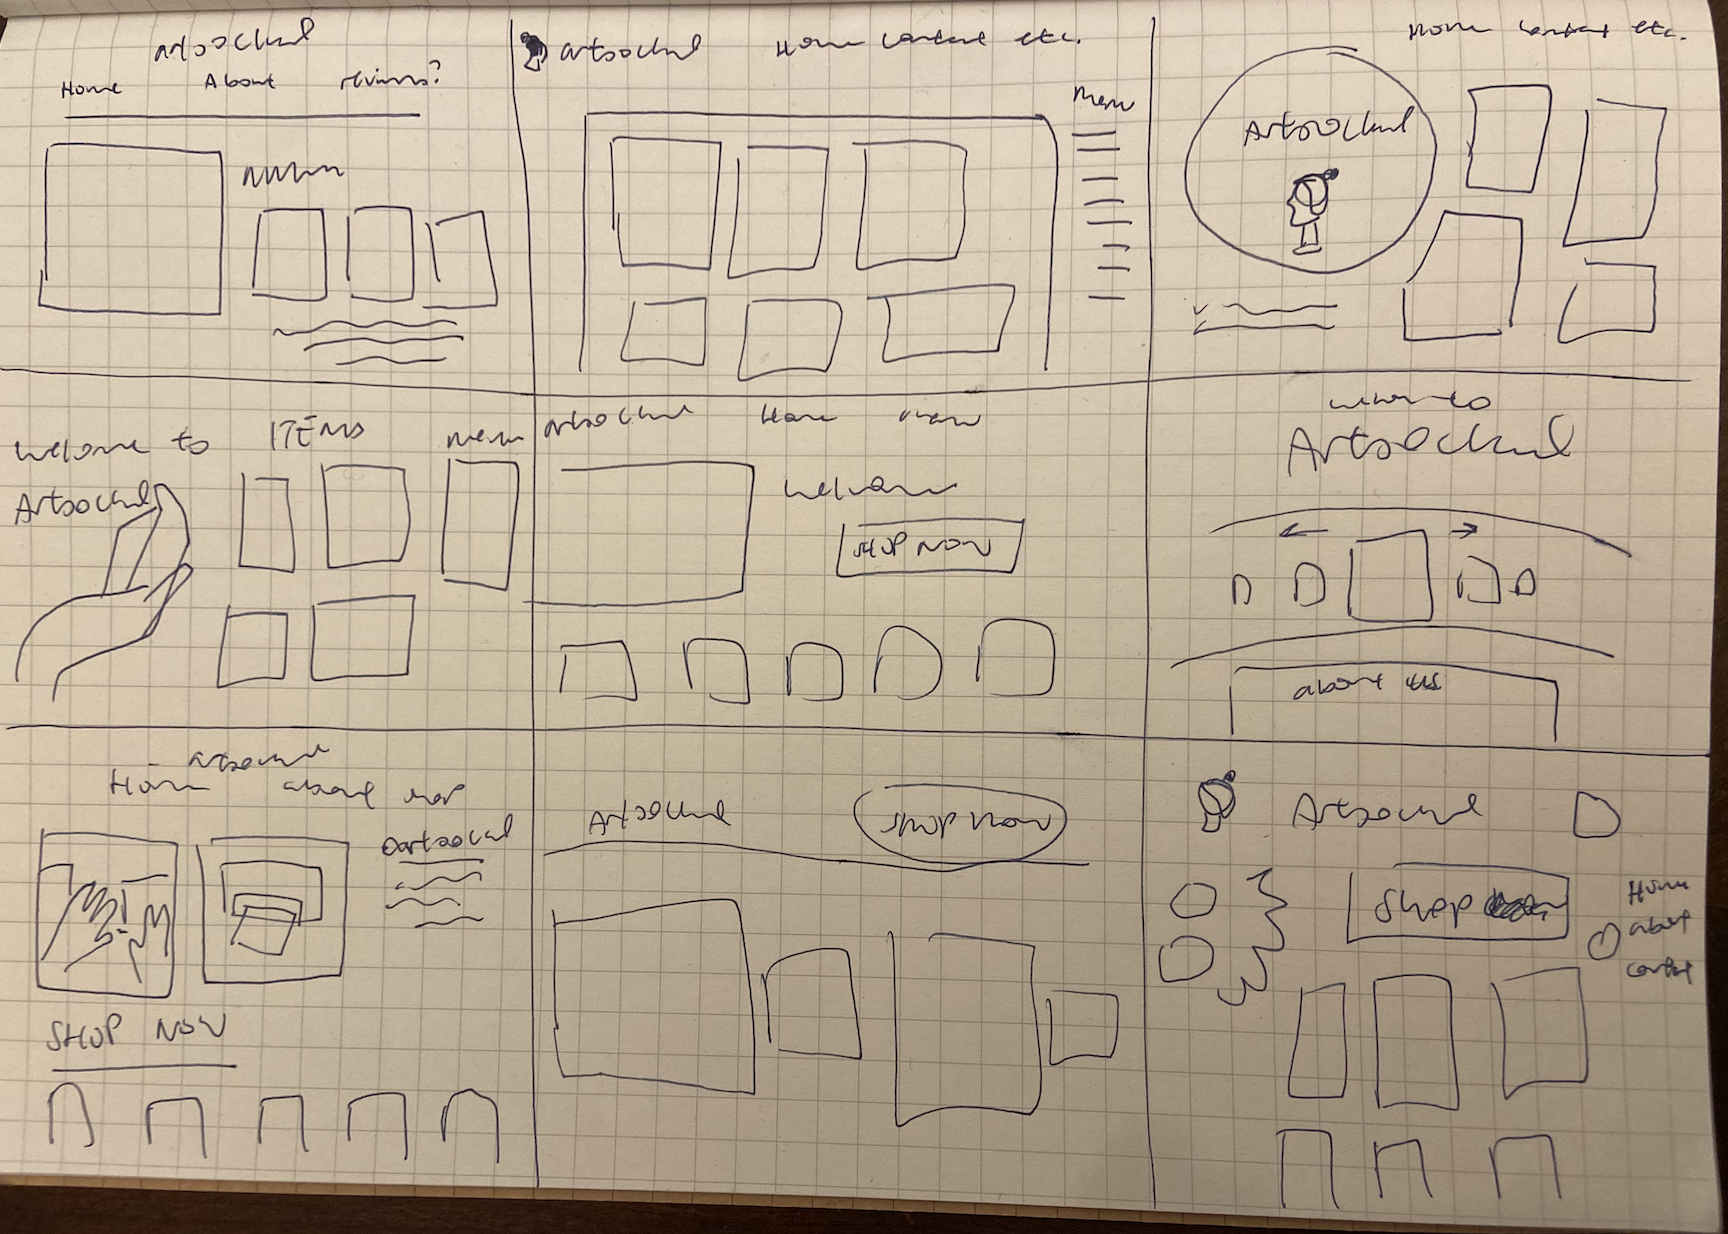 artsockul
Home About reviews?
artsockul Home contact etc.
Menu
Home contact etc.
Artsockul
Welcome to
Artsockul
ITEMS
menu
artsockul Home
Welcome
SHOP NOW
Artsockul
about us
Home about
SHOP NOW
Artsockul
shop now
Artsockul
Shop
Home
about
contact